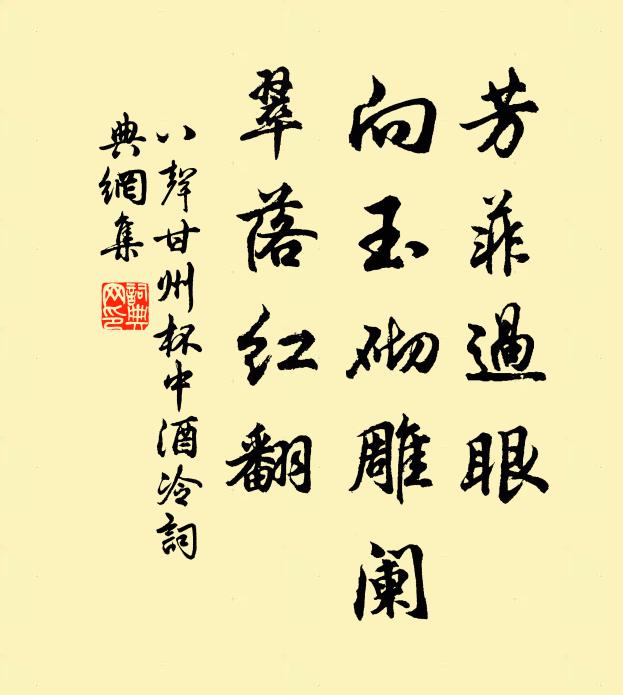 芳菲過眼
向玉砌雕阑
翠落红翻
八聲甘州杯中酒冷詞
典網集
詞典
网印